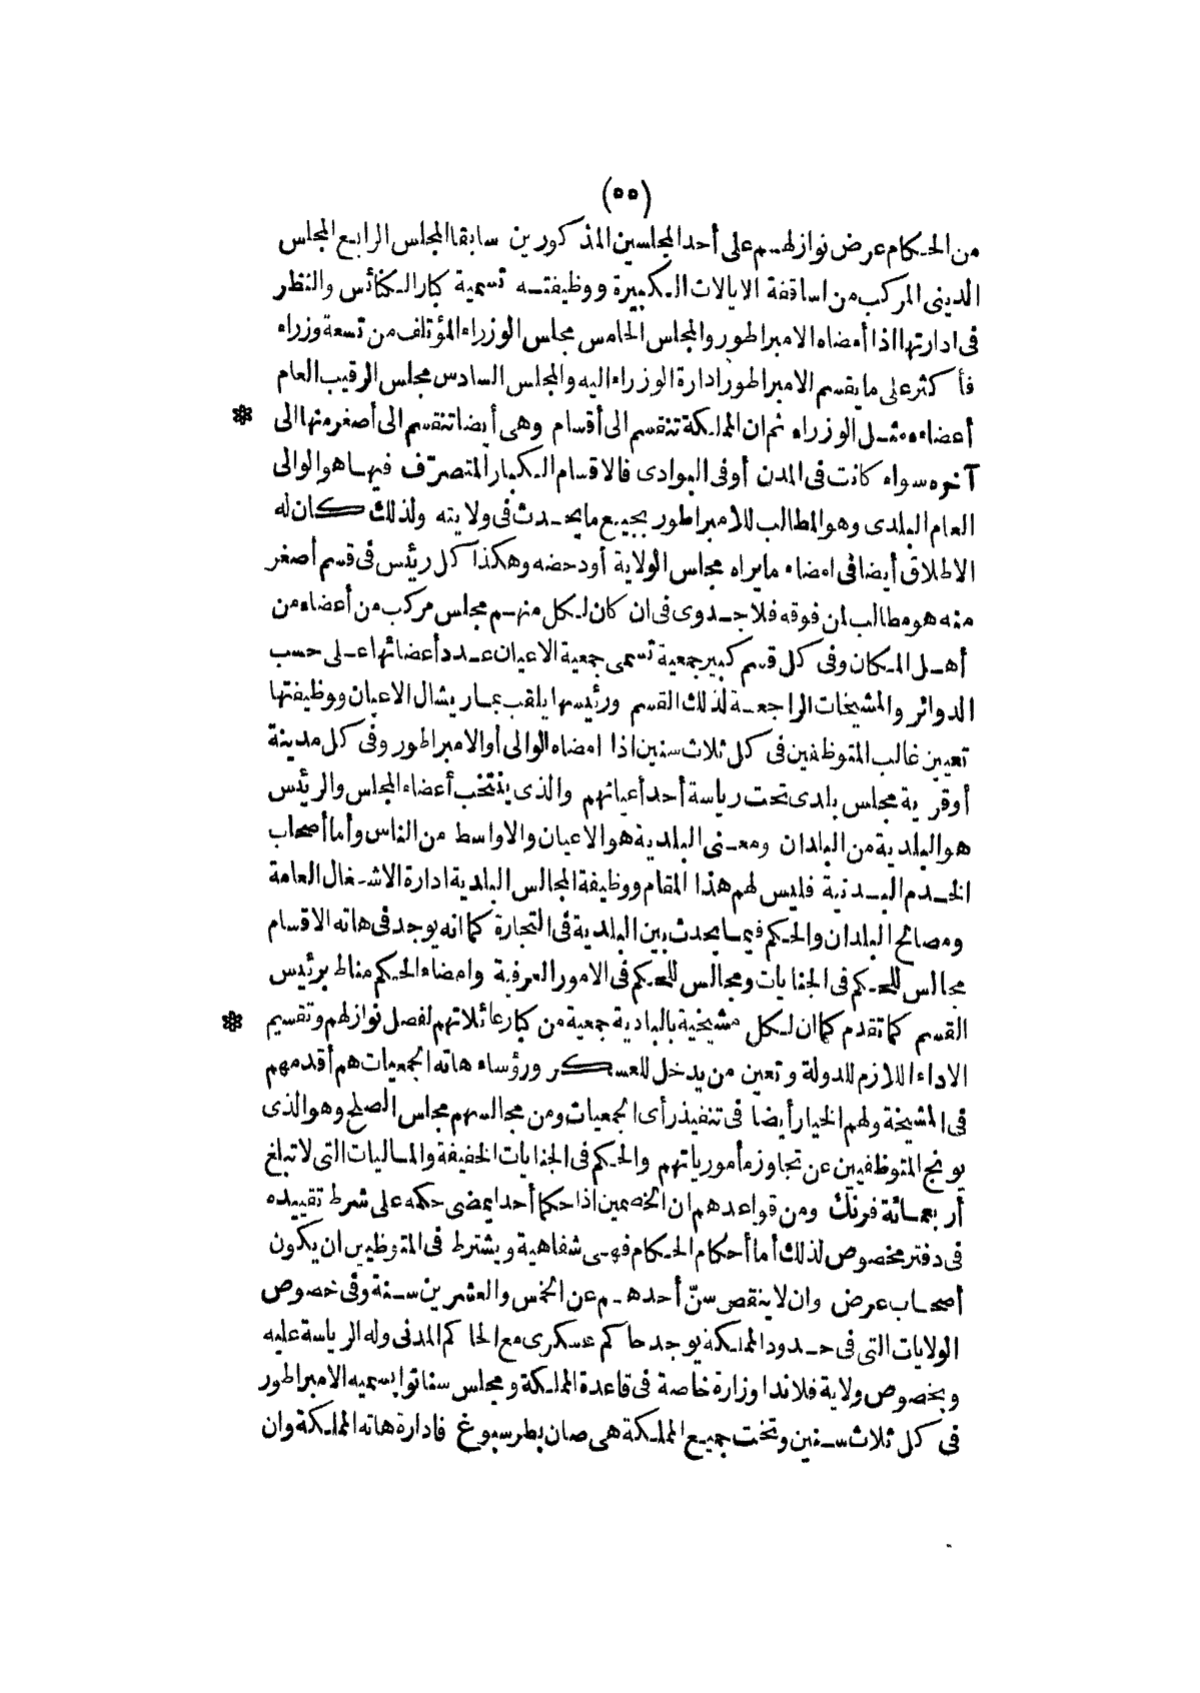 (٥٥)
من الحكام عرض نوازلهم على أحد المجلسين المذكورين سابقا المجلس الرابع المجلس
الدينى المركب من اساقفة الايالات الكبيرة ووظيفته تسمية كبار الكنائس والنظر
فى ادارتها اذا أمضاه الامبراطور والمجلس الخامس مجلس الوزراء المؤتلف من تسعة وزراء
فأكثر على ما يقسم الامبراطور ادارة الوزراء اليه والمجلس السادس مجلس الرقيب العام
أعضاءه مثل الوزراء ثم ان المملكة تنقسم الى أقسام وهى أيضا تنقسم الى أصغر منها الى *
آخره سواء كانت فى المدن أو فى البوادى فالاقسام الكبار المتصرّف فيها هو الوالى
العام البلدى وهو المطالب للامبراطور بجميع ما يحدث فى ولايته ولذلك كان له
الاطلاق أيضا فى امضاء ما يراه مجلس الولاية أو دحضه وهكذا كل رئيس فى قسم أصغر
منه هو مطالب لمن فوقه فلا جدوى فى ان كان لكل منهم مجلس مركب من أعضاء من
أهل المكان وفى كل قسم كبير جمعية تسمى جمعية الاعيان عدد أعضائها على حسب
الدوائر والمشيخات الراجعة لذلك القسم ورئيسها يلقب بماريشال الاعيان ووظيفتها
تعيين غالب المتوظفين فى كل ثلاث سنين اذا امضاه الوالى أو الامبراطور وفى كل مدينة
أو قرية مجلس بلدى تحت رياسة أحد أعيانهم والذى ينتخب أعضاء المجلس والرئيس
هو البلدية من البلدان ومعنى البلدية هو الاعيان والاواسط من الناس وأما أصحاب
الخدم البدنية فليس لهم هذا المقام ووظيفة المجالس البلدية ادارة الاشغال العامة
ومصالح البلدان والحكم فيما يحدث بين البلدية فى التجارة كما انه يوجد فى هاته الاقسام
مجالس للحكم فى الجنايات ومجالس للحكم فى الامور العرفية وامضاء الحكم مناط برئيس
القسم كما تقدم كما ان لكل مشيخية بالبادية جمعية من كبار عائلاتهم لفصل نوازلهم وتقسيم *
الاداء اللازم للدولة وتعين من يدخل للعسكر ورؤساء هاته الجمعيات هم أقدمهم
فى المشيخة ولهم الخيار أيضا فى تنفيذ رأى الجمعيات ومن مجالسهم مجلس الصلح وهو الذى
يوبخ المتوظفين عن تجاوز مأمورياتهم والحكم فى الجنايات الخفيفة والماليات التى لا تبلغ
أربعمائة فرنك ومن قواعدهم ان الخصمين اذا حكما أحدا يمضى حكمه على شرط تقييده
فى دفتر مخصوص لذلك أما أحكام الحكام فهى شفاهية ويشترط فى المتوظفين ان يكون
أصحاب عرض وان لا ينقص سنّ أحدهم عن الخمس والعشرين سنة وفى خصوص
الولايات التى فى حدود المملكة يوجد حاكم عسكرى مع الحاكم المدنى وله الرياسة عليه
وبخصوص ولاية فلاندا وزارة خاصة فى قاعدة المملكة ومجلس سناتو يسميه الامبراطور
فى كل ثلاث سنين وتخت جميع المملكة هى صان بطرسبوغ فادارة هاته المملكة وان